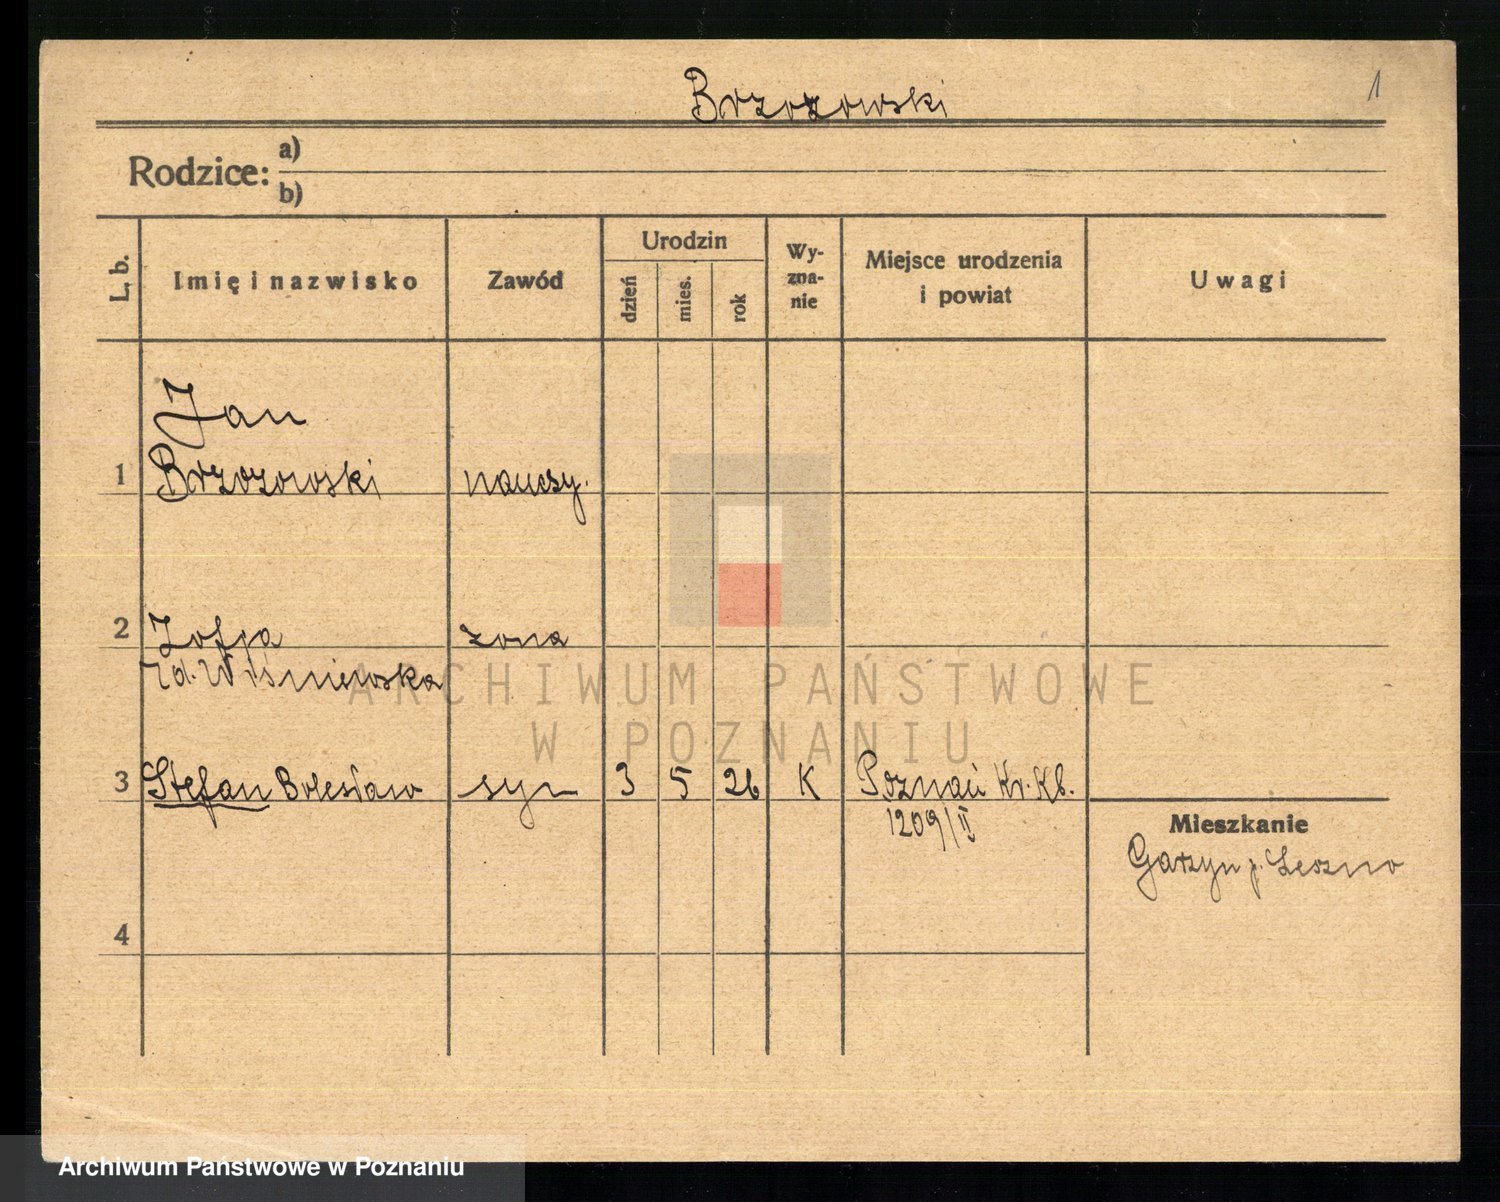 Brzozowski
1
Rodzice: a)
b)
L. b.
Imię i nazwisko
Zawód
Urodzin
dzień
mies.
rok
Wy-
zna-
nie
Miejsce urodzenia
i powiat
Uwagi
Jan
1 Brzozowski nauczy.
2 Zofja żona
zd. Wiśniewska
3 Stefan Bolesław syn 3 5 26 K Poznań Kr. Kb.
1209/II
Mieszkanie
Garzyn p. Leszno
4
ARCHIWUM PAŃSTWOWE
W POZNANIU
Archiwum Państwowe w Poznaniu